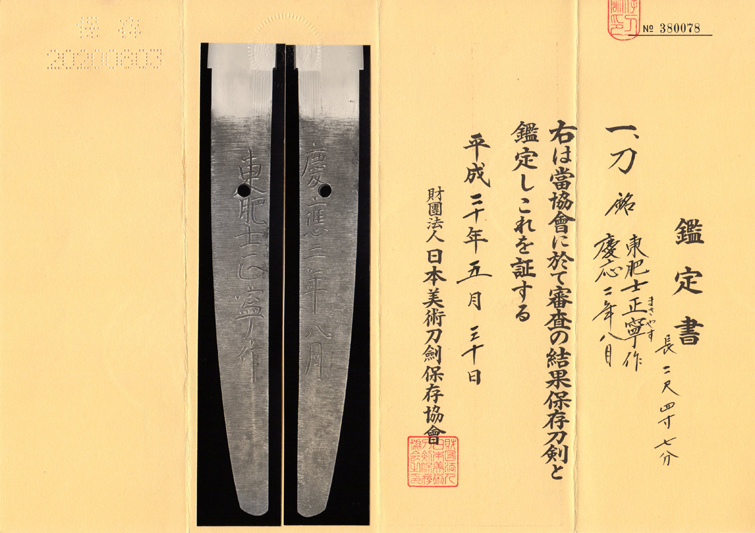 № 380078
鑑定書
一、刀 銘 東肥士正寧作
まさやす
慶応二年八月
長二尺四寸七分
右は當協會に於て審査の結果保存刀剣と
鑑定しこれを証する
平成二十年五月三十日
財團法人 日本美術刀劍保存協會
慶應二年八月
東肥士正寧作